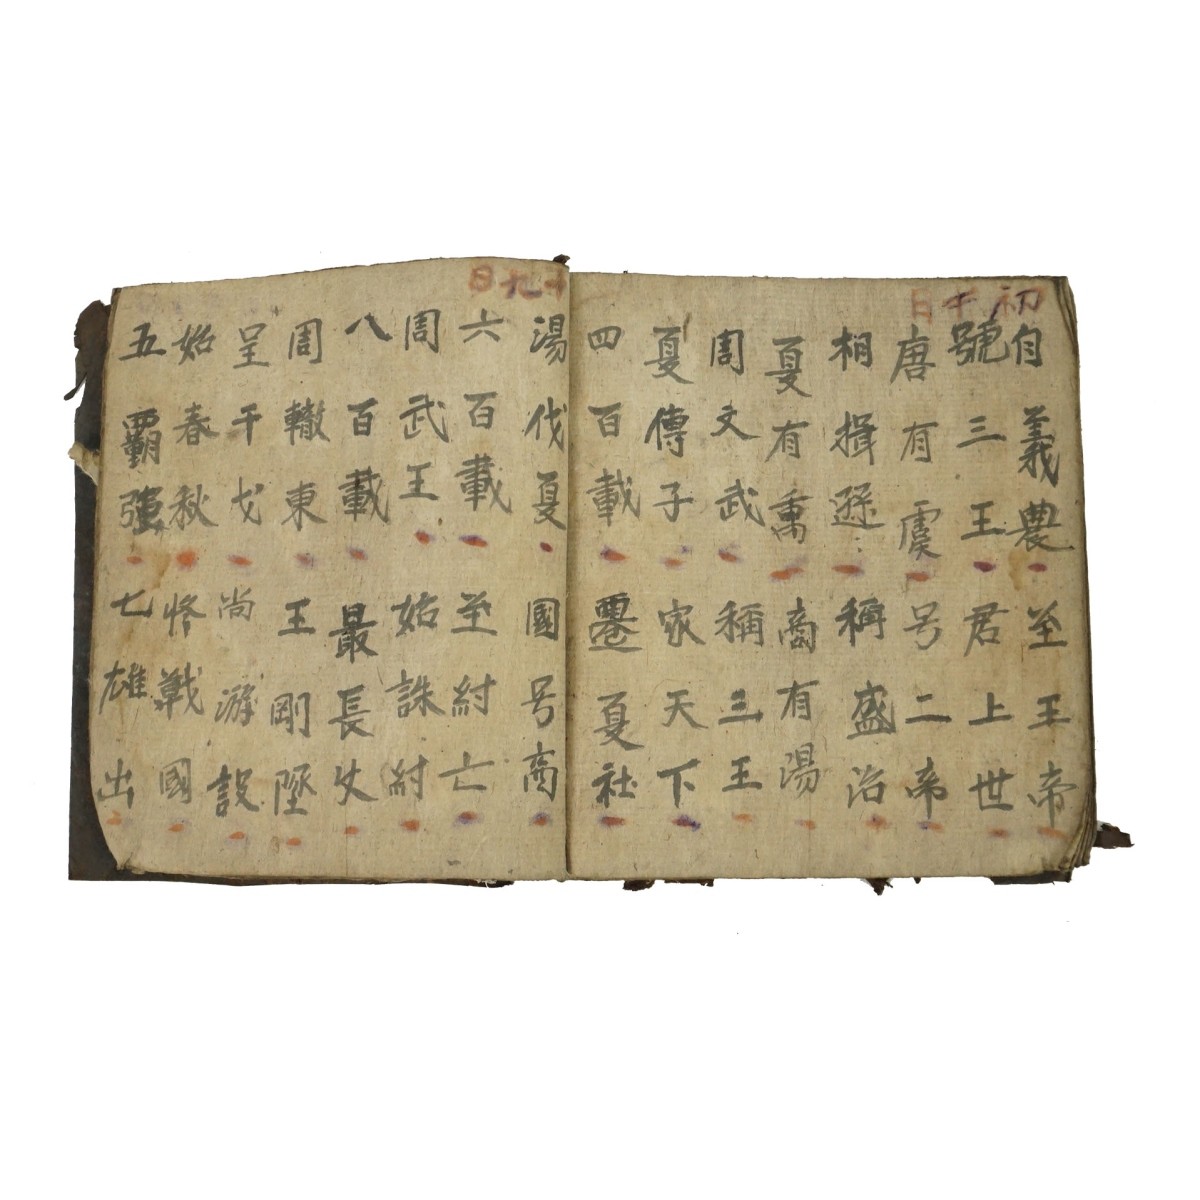 初十日
自義農至王帝
號三王君上世
唐有虞号二帝
相揖遜稱盛治
夏有禹商有湯
周文武稱三王
夏傳子家天下
四百載遷夏社
十九日
湯伐夏國号商
六百載至紂亡
周武王始誅紂
八百載最長久
周轍東王剛墜
呈干戈尚游說
始春秋終戰國
五霸強七雄出